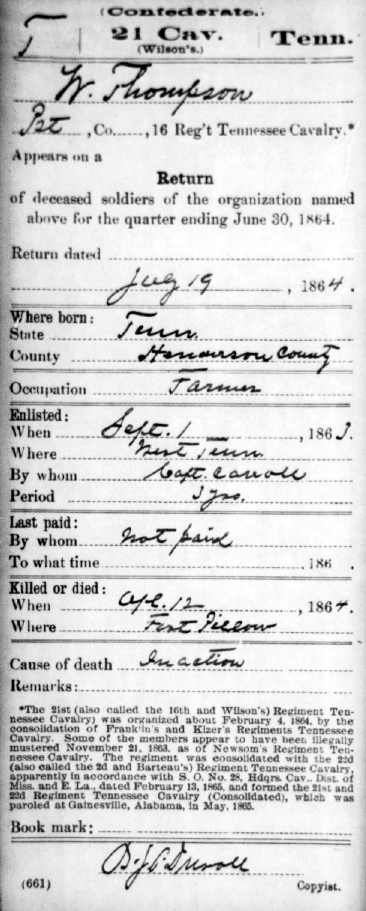 (Confederate.)
T
21 Cav.
(Wilson's.)
Tenn.
W. Thompson
Pvt, Co. , 16 Reg't Tennessee Cavalry.*
Appears on a
Return
of deceased soldiers of the organization named
above for the quarter ending June 30, 1864.
Return dated
July 19, 1864.
Where born:
State Tenn.
County Henderson County
Occupation Farmer
Enlisted:
When Sept. 1, 1863.
Where West Tenn.
By whom Capt. Carroll
Period 3 yrs.
Last paid:
By whom not paid
To what time , 186 .
Killed or died:
When Apl. 12, 1864.
Where Fort Pillow
Cause of death In action
Remarks:
*The 21st (also called the 16th and Wilson's) Regiment Ten-
nessee Cavalry) was organized about February 4, 1864, by the
consolidation of Franklin's and Kizer's Regiments Tennessee
Cavalry. Some of the members appear to have been illegally
mustered November 21, 1863, as of Newsom's Regiment Ten-
nessee Cavalry. The regiment was consolidated with the 22d
(also called the 2d and Barteau's) Regiment Tennessee Cavalry,
apparently in accordance with S. O. No. 28, Hdqrs. Cav., Dist. of
Miss. and E. La., dated February 13, 1865, and formed the 21st and
22d Regiment Tennessee Cavalry (Consolidated), which was
paroled at Gainesville, Alabama, in May, 1865.
Book mark:
(661)
Copyist.